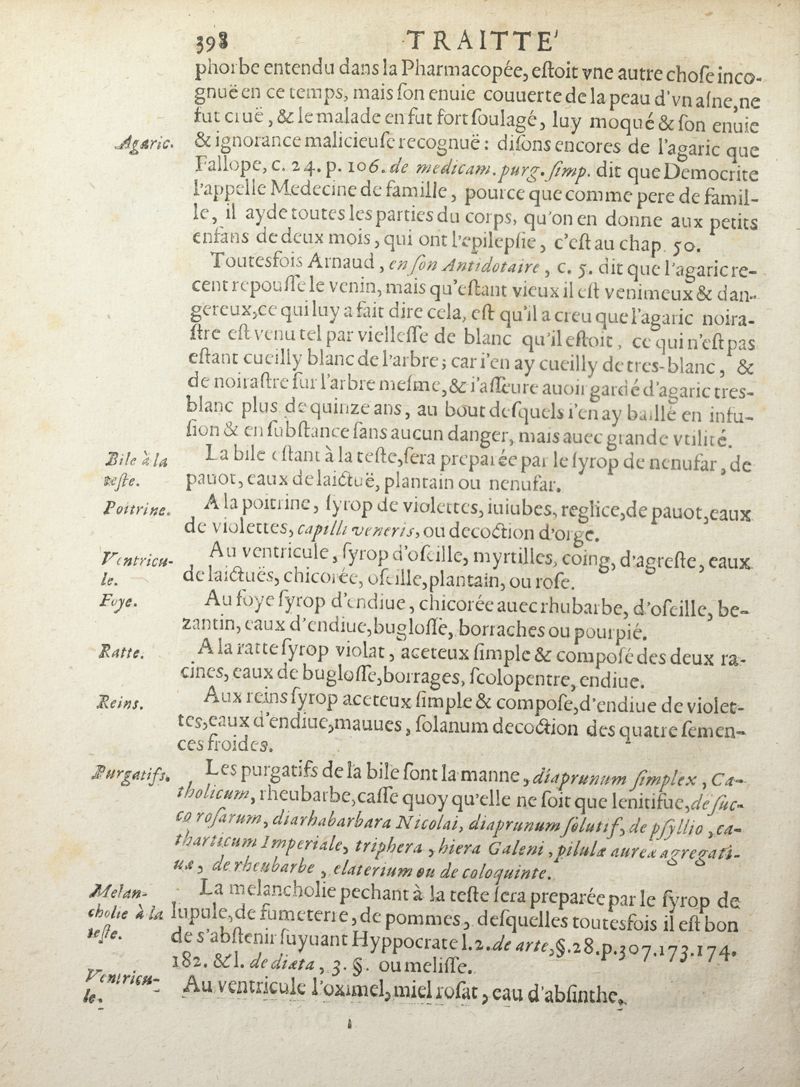 398 TRAITTE'
phorbe entendu dans la Pharmacopée, eſtoit vne autre choſe inco-
gnuë en ce temps, mais ſon enuie couuerte de la peau d'vn aſne, ne
fut cruë, & le malade en fut fort ſoulagé, luy moqué & ſon enuie
Agaric. & ignorance malicieuſe recognuë: diſons encores de l'agaric que
Fallope, c. 24. p. 106. de medicam. purg. ſimp. dit que Democrite
l'appelle Medecine de famille, pource que comme pere de famil-
le, il ayde toutes les parties du corps, qu'on en donne aux petits
enfans de deux mois, qui ont l'epilepſie, c'eſt au chap. 50.
Toutesfois Arnaud, en ſon Antidotaire, c. 5. dit que l'agaric re-
cent repouſſe le venin, mais qu'eſtant vieux il eſt venimeux & dan-
gereux, ce qui luy a fait dire cela, eſt qu'il a creu que l'agaric noira-
ſtre eſt venu tel par vielleſſe de blanc qu'il eſtoit, ce qui n'eſt pas
eſtant cueilly blanc de l'arbre; car i'en ay cueilly de tres-blanc, &
de noiraſtre ſur l'arbre meſme, & i'aſſeure auoir gardé d'agaric tres-
blanc plus de quinze ans, au bout deſquels i'en ay baillé en infu-
ſion & en ſubſtance ſans aucun danger, mais auec grande vtilité.
Bile à la La bile eſtant à la teſte, ſera preparée par le ſyrop de nenufar, de
teſte. pauot, eaux de laictuë, plantain ou nenufar.
Poitrine. A la poitrine, ſyrop de violettes, iuiubes, reglice, de pauot, eaux
de violettes, capilli veneris, ou decoction d'orge.
Ventricu- Au ventricule, ſyrop d'oſeille, myrtilles, coing, d'agreſte, eaux
le. de laictues, chicorée, oſeille, plantain, ou roſe.
Foye. Au foye ſyrop d'endiue, chicorée auec rhubarbe, d'oſeille, be-
zantin, eaux d'endiue, bugloſſe, borraches ou pourpié.
Ratte. A la ratte ſyrop violat, aceteux ſimple & compoſé des deux ra-
cines, eaux de bugloſſe, borrages, ſcolopentre, endiue.
Reins. Aux reins ſyrop aceteux ſimple & compoſe, d'endiue de violet-
tes, eaux d'endiue, mauues, ſolanum decoction des quatre ſemen-
ces froides.
Purgatifs. Les purgatifs de la bile ſont la manne, diaprunum ſimplex, Ca-
tholicum, rheubarbe, caſſe quoy qu'elle ne ſoit que lenitifue, de ſuc-
co roſarum, diarhabarbara Nicolai, diaprunum ſolutif, de pſyllio, ca-
tharticum Imperiale, triphera, hiera Galeni, pilulæ aureæ agregati-
uæ, de rheubarbe, elaterium ou de coloquinte.
Melan- La melancholie pechant à la teſte ſera preparée par le ſyrop de
cholie à la lupule, de fumeterre, de pommes, deſquelles toutesfois il eſt bon
teſte. de s'abſtenir ſuyuant Hyppocrate l. 2. de arte, §. 28. p. 307. 173. 174.
182. & l. de diæta, 3. §. ou meliſſe.
Ventricu- Au ventricule l'oximel, miel roſat, eau d'abſinthe,
le.